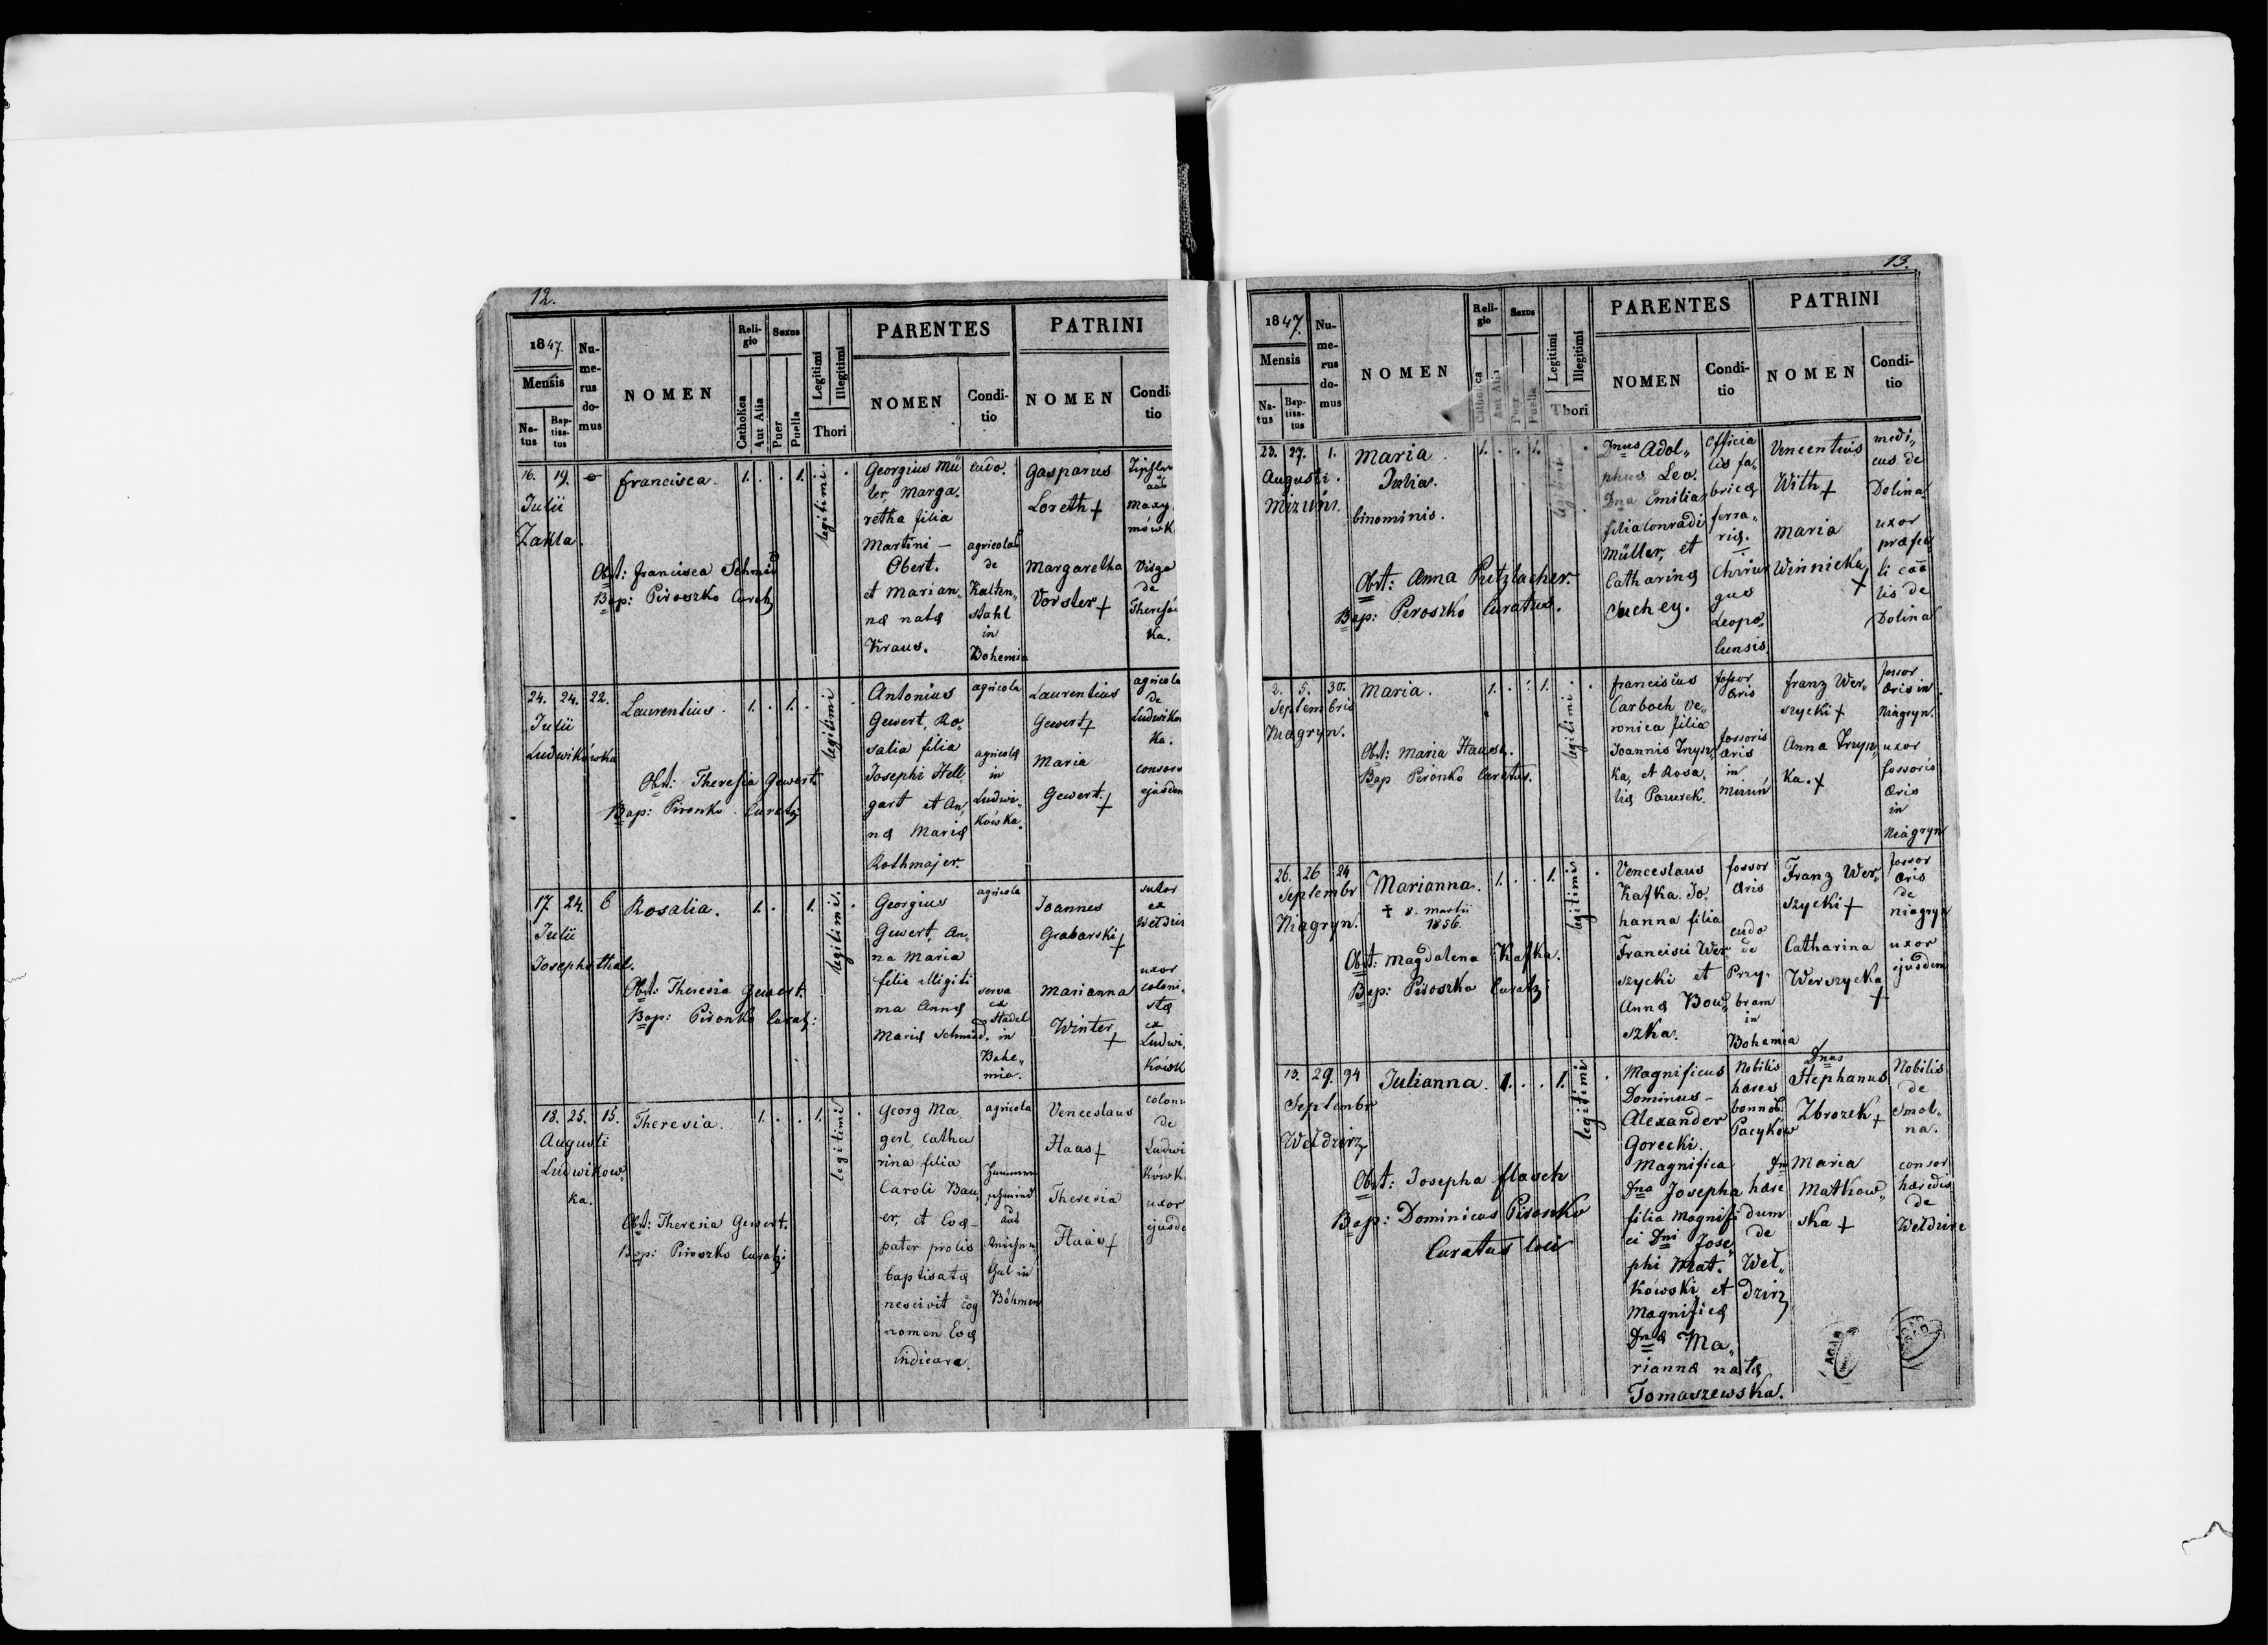 12.
1847.
Mensis
Na-
tus
Bap-
tisa-
tus
Nu-
me-
rus
do-
mus
NOMEN
Reli-
gio
Catholica
Aut Alia
Sexus
Puer
Puella
Legitimi
Illegitimi
Thori
PARENTES
NOMEN
Condi-
tio
PATRINI
NOMEN
Condi-
tio
16. 19.
Julii
Zakla.
Francisca.
1. . . 1.
legitimi
Obst: Francisca Schmid
Bap: Piroszko
Georgius Mü
ler, Marga.
retha filia
Martini —
Obert.
et Marian„
næ natæ
Kraus.
cudo.
agricolæ
de
Kalten„
stahl
in
Bohemia
Gasparus
Loreth +
Margaretha
Vorster +
aus
Maxy.
mówk
Virgo
de
ka.
24. 24. 22.
Julii
Ludwikówka
Laurentius.
1. . 1. .
legitimi
Obst: Theresia Gewert
Bap: Pironko
Antonius
Gewert, Ro„
salia filia
Josephi Hell
gart et An„
næ Mariæ
Rothmajer.
agricola
agricolæ
in
Ludwi„
kówka.
Laurentius
Gewert +
Maria
Gewert. +
agricola
de
Ludwików
ka.
consors
ejusdem
17. 24. 6
Julii
Josephsthal.
Rosalia.
1. . 1.
legitimi.
Obst: Theresia Gewert.
Bap: Pironko
Georgius
Gewert, An„
na Maria
filia illigiti
ma Annæ
Mariæ Schmid.
agricola
serva
ex
Stadel
in
Bohe„
mia.
Joannes
Grabarski +
Marianna
Winter +
sutor
ex
Wełdzirz
uxor
coloni„
stæ
ex
Ludwi.
kówk
18. 25. 15.
Augusti
Ludwikow„
ka.
Theresia.
1. . . 1.
legitimi
Obst: Theresia Gewert.
Bap: Piroszko
Georg Ma„
gerl, Catha
rina filia
Caroli Bau„
er, et Evæ —
pater prolis
baptisatæ
nescivit cog
nomen Evæ
indicare.
agricola
aus
in
Böhmen
Venceslaus
Haas +
Theresia
Haas +
colonus
de
Ludwi
kówk
uxor
ejusde
13.
1847.
Mensis
Na-
tus
Bap-
tisa-
tus
Nu-
me-
rus
do-
mus
NOMEN
Reli-
gio
Catholica
Aut Alia
Sexus
Puer
Puella
Legitimi
Illegitimi
Thori
PARENTES
NOMEN
Condi-
tio
PATRINI
NOMEN
Condi-
tio
23. 27. 1.
Augusti.
Mizuń.
Maria
Julia.
binominis.
1. . . 1.
legitimi
Obst: Anna Putzlacher.
Bap: Piroszko Curatus.
Dnus Adol„
phus Leo.
Dna Emilia
filia Conradi
Müller, et
Catharinæ
Officia
lis fa„
bricæ
ferra„
riæ.
Chirur
gus
Leopo„
liensis.
Vincentius
With +
Maria
Winnicka +
medi„
cus de
Dolina
uxor
præfec
ti
lis de
Dolina
2. 5. 30.
Septembris
Niagryn.
Maria.
1. . . 1.
legitimi.
Obst: Maria
Bap Pironko Curatus.
Franciscus
Carboch Ve„
ronica filia
Joannis
ka, et Rosa„
liæ Pazurek.
fossor
æris
fossoris
æris
in
Mizuń
Franz Wer„
szycki +
Anna
ka. +
fossor
æris in
Niagryn.
uxor
fossoris
æris
in
Niagryn
26. 26 24
Septembr
Niagryn.
Marianna.
1. . . 1.
legitimi
+ 8. Martii
1856.
Obst: Magdalena Kafka.
Bap: Piroszko
Venceslaus
Kafka. Jo„
hanna filia
Francisci Wer
szycki et
Annæ Bou„
szka.
fossor
æris
cudo
de
Przy„
bram
in
Bohemia
Franz Wer„
szycki +
Catharina
Werszycka +
fossor
æris
de
Niagryn
uxor
ejusdem
13. 29. 94
Septembr
Wełdzirz
Julianna.
1. . . 1.
legitimi
Obst: Josepha Flasch
Bap: Dominicus Pironko
Curatus loci
Magnificus
Dominus —
Alexander
Gorecki.
Magnifica
Dna Josepha
filia Magnifi
ci Dni Jose„
phi Mat„
kówski et
Magnificæ
Dnæ Ma„
riannæ natæ
Tomaszewska.
Nobilis
hæres
bonnor.
Pacyków
hære
dum
de
Weł„
dzirz
Dnus
Stephanus
Zbrozek +
Maria
Matkow„
ska +
Nobilis
de
Smol„
na.
consor
hæredis
de
Wełdzirz
AGAD